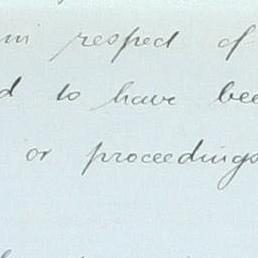 in respect of
d to have bee
or proceedings